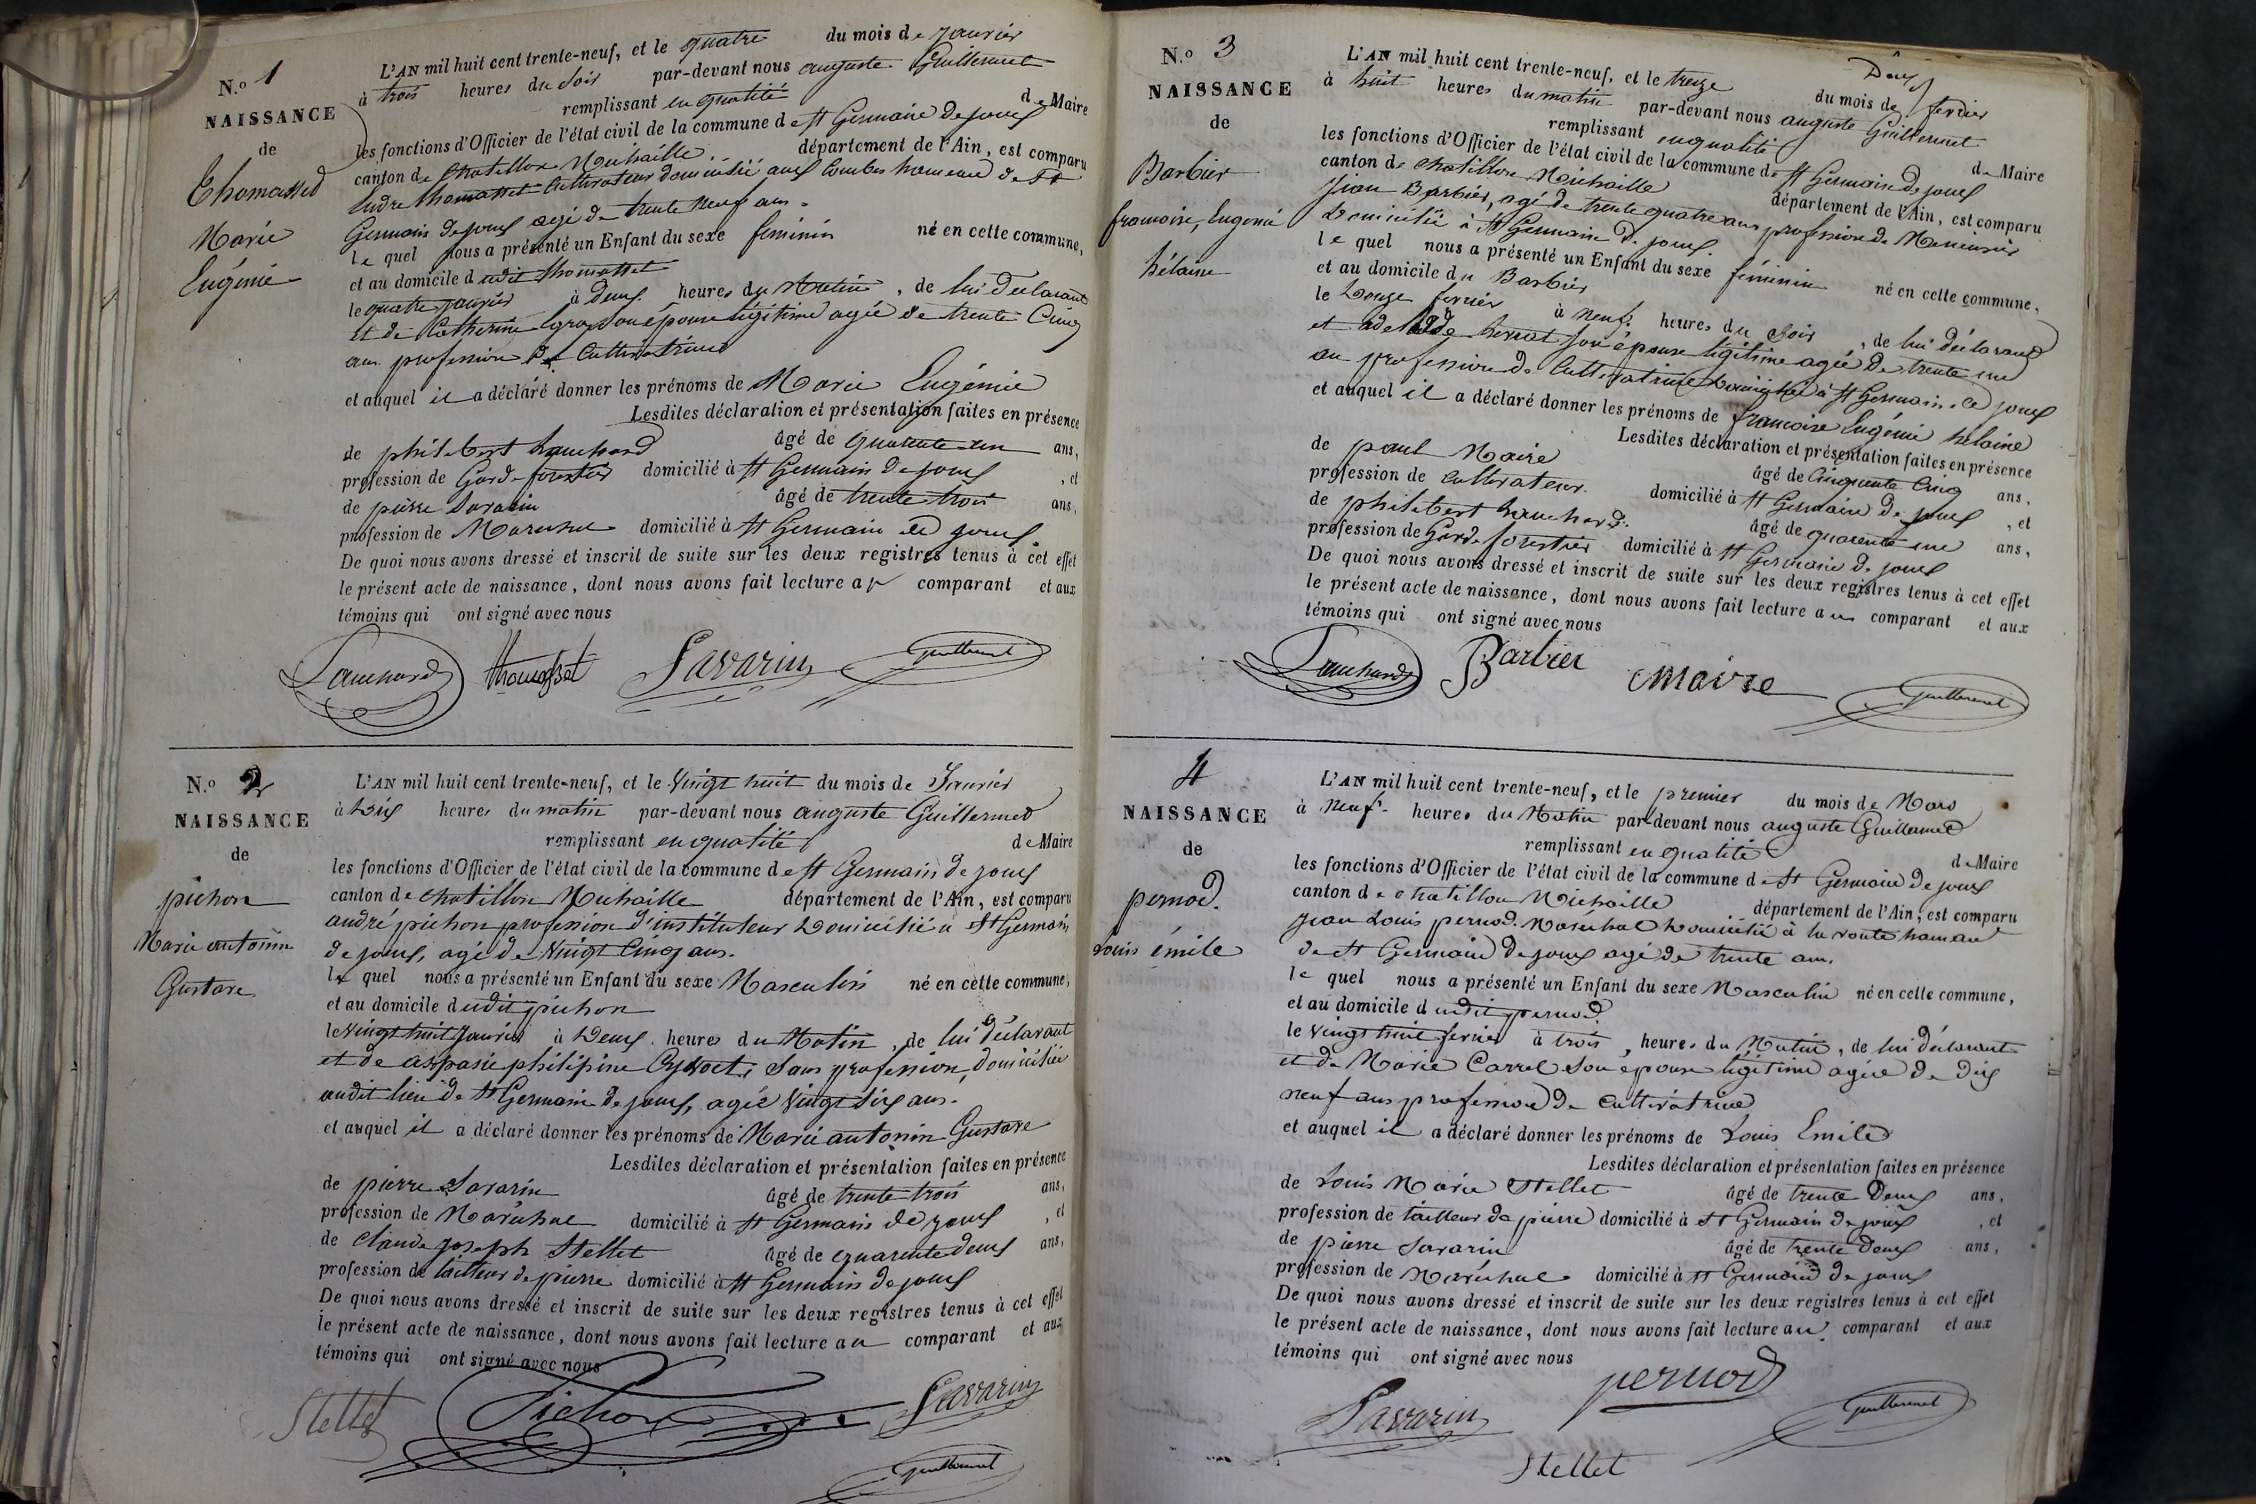 N.o 1
NAISSANCE
de
Thomasset
Marie
Eugénie
L'AN mil huit cent trente-neuf, et le quatre du mois de janvier
à trois heures du soir par-devant nous auguste Guillermet
remplissant en qualité de Maire
les fonctions d'Officier de l'état civil de la commune de St Germain De joux
canton de Chatillon Michaille département de l'Ain, est comparu
andre thomasset Cultivateur domicilié aux Combes hameau de St
Germain de joux agé de trente neuf ans.
le quel nous a présenté un Enfant du sexe feminin né en cette commune,
et au domicile dudit thomasset
le quatre janvier à Deux heures du Matin, de lui Déclarant
Et de Catherine Gros son épouse légitime agée de trente Cinq
ans profession De Cultivatrice
et auquel il a déclaré donner les prénoms de Marie Eugénie
Lesdites déclaration et présentation faites en présence
de philibert Lanchard âgé de quarante un ans,
profession de Garde forestier domicilié à St Germain de joux, et
de pierre Savarin âgé de trente trois ans,
profession de Maréchal domicilié à St Germain de joux
De quoi nous avons dressé et inscrit de suite sur les deux registres tenus à cet effet
le présent acte de naissance, dont nous avons fait lecture au comparant et aux
témoins qui ont signé avec nous
Lanchard thomasset Savarin Guillermet
N.o 2
NAISSANCE
de
pichon
Marie antonin
Gustave
L'AN mil huit cent trente-neuf, et le Vingt huit du mois de Janvier
à Dix heures du matin par-devant nous auguste Guillermet
remplissant en qualité de Maire
les fonctions d'Officier de l'état civil de la commune de St Germain de joux
canton de Chatillon Michaille département de l'Ain, est comparu
andré pichon profession d'instituteur Domicilié a St Germain
de joux, agé de Vingt Cinq ans.
le quel nous a présenté un Enfant du sexe Masculin né en cette commune,
et au domicile dudit pichon
le Vingt huit Janvier à Deux heures du Matin, de lui déclarant
et de aspasie philipine, Sans profession, Domiciliée
audit lieu de St Germain de joux, agée Vingt Six ans.
et auquel il a déclaré donner les prénoms de Marie antonin Gustave
Lesdites déclaration et présentation faites en présence
de pierre Savarin âgé de trente trois ans,
profession de Maréchal domicilié à St Germain de joux, et
de Claude joseph Stellet âgé de quarente deux ans,
profession de tailleur de pierre domicilié à St Germain de joux
De quoi nous avons dressé et inscrit de suite sur les deux registres tenus à cet effet
le présent acte de naissance, dont nous avons fait lecture au comparant et aux
témoins qui ont signé avec nous
Stellet Pichon Savarin
Guillermet
Deux
N.o 3
NAISSANCE
de
Barbier
francoise, Eugenie
hélaine
L'AN mil huit cent trente-neuf, et le treize du mois de fevrier
à huit heures du matin par-devant nous auguste Guillermet
remplissant en qualité de Maire
les fonctions d'Officier de l'état civil de la commune de St Germain de joux
canton de Chatillon Michaille département de l'Ain, est comparu
Jean Barbier, agé de trente quatre ans profession de Menuisier
Domicilié à St Germain de joux.
le quel nous a présenté un Enfant du sexe féminin né en cette commune,
et au domicile du Barbier
le Douze fevrier à neuf heures du Soir, de lui déclarant
et son épouse légitime agée De trente un
an profession de Cultivatrice Domiciliée à St Germain de joux
et auquel il a déclaré donner les prénoms de francoise Eugénie hélaine
Lesdites déclaration et présentation faites en présence
de paul Maire âgé de Cinquente Cinq ans,
profession de cultivateur domicilié à St Germain de joux, et
de philibert Lanchard âgé de quarente un ans,
profession de Garde forestier domicilié à St Germain de joux
De quoi nous avons dressé et inscrit de suite sur les deux registres tenus à cet effet
le présent acte de naissance, dont nous avons fait lecture au comparant et aux
témoins qui ont signé avec nous
Lanchard Barbier Maire Guillermet
4
NAISSANCE
de
pernod
Louis émile
L'AN mil huit cent trente-neuf, et le premier du mois de Mars
à Neuf heures du Matin par-devant nous auguste Guillermet
remplissant en qualité de Maire
les fonctions d'Officier de l'état civil de la commune de St Germain de joux
canton de chatillon Michaille département de l'Ain, est comparu
Jean Louis pernod Maréchal Domicilié à la route hameau
de St Germain de joux agé de trente ans.
le quel nous a présenté un Enfant du sexe Masculin né en cette commune,
et au domicile dudit pernod
le Vingt huit fevrier à trois heures du Matin, de lui déclarant
et de Marie Carrel son épouse légitime agée de dix
neuf ans profession de Cultivatrice
et auquel il a déclaré donner les prénoms de Louis Emile
Lesdites déclaration et présentation faites en présence
de Louis Marie Stellet âgé de trente Deux ans,
profession de tailleur de pierre domicilié à St Germain de joux, et
de pierre Savarin âgé de trente Deux ans,
profession de Maréchal domicilié à St Germain de joux
De quoi nous avons dressé et inscrit de suite sur les deux registres tenus à cet effet
le présent acte de naissance, dont nous avons fait lecture au comparant et aux
témoins qui ont signé avec nous
Savarin pernod Guillermet
Stellet